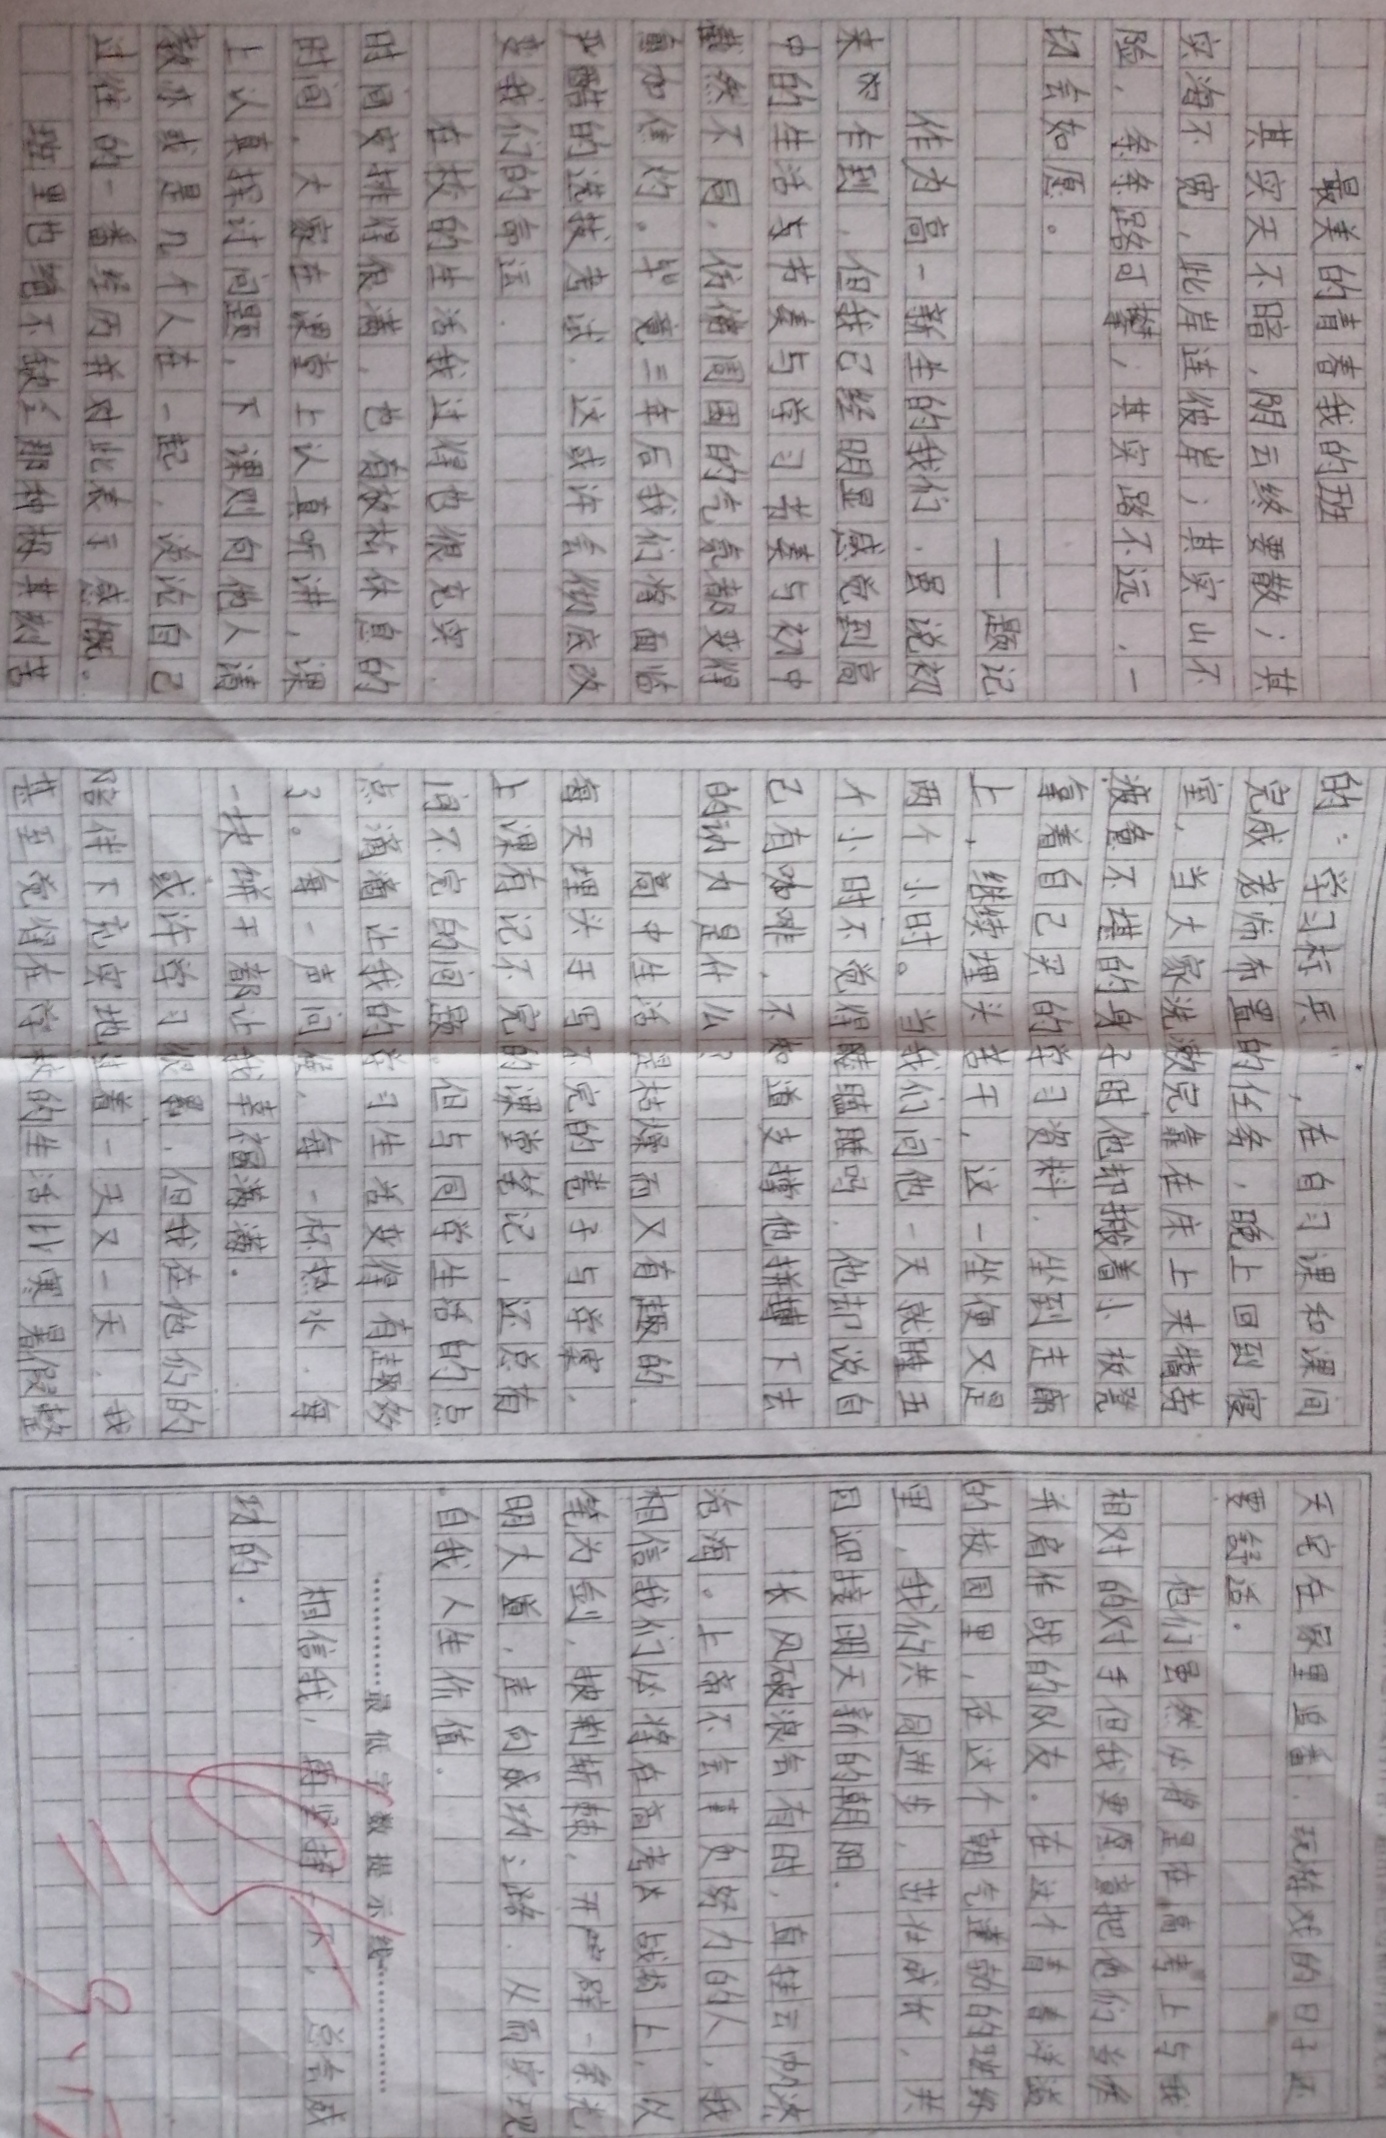 最美的青春我的班
其实天不暗，阴云终要散；其
实海不宽，此岸连彼岸；其实山不
险，条条路可攀；其实路不远，一
切会如愿。
——题记
作为高一新生的我们，虽说初
来乍到，但我已经明显感觉到高
中的生活与节奏与学习节奏与初中
截然不同，仿佛周围的气氛都变得
更加焦灼。毕竟三年后我们将面临
严酷的选拔考试，这或许会彻底改
变我们的命运。
在校的生活我过得也很充实，
时间安排得很满，也有放松休息的
时间，大家在课堂上认真听讲，课
上认真探讨问题，下课则向他人请
教亦或是几个人在一起，谈论自己
过往的一番经历并对此表示感慨。
班里也绝不缺乏那种极其刻苦
的“学习标兵”，在自习课和课间
完成老师布置的任务，晚上回到寝
室，当大家洗漱完靠在床上来犒劳
疲惫不堪的身子时他却搬着小板凳
拿着自己买的学习资料，坐到走廊
上，继续埋头苦干，这一坐便又是
两个小时。当我们问他一天就睡五
个小时不觉得瞌睡吗，他却说自
己有咖啡，不知道支撑他拼搏下去
的动力是什么？
高中生活是枯燥而又有趣的，
每天埋头于写不完的卷子与学案，
上课有记不完的课堂笔记，还总有
问不完的问题，但与同学生活的点
点滴滴让我的学习生活变得有趣多
了。每一声问候，每一杯热水，每
一块饼干都让我幸福满满。
或许学习很累，但我在他们的
陪伴下充实地过着一天又一天，我
甚至觉得在学校的生活比寒暑假整
天宅在家里追番，玩游戏的日子还
要舒适。
他们虽然必将是在高考上与我
相对的对手但我更愿意把他们当作
并肩作战的队友。在这个青春洋溢
的校园里，在这个朝气蓬勃的班级
里，我们共同进步，茁壮成长，共
同迎接明天新的朝阳。
长风破浪会有时，直挂云帆济
沧海。上帝不会辜负努力的人，我
相信我们必将在高考战场上，以
笔为剑，披荆斩棘，开辟一条光
明大道，走向成功之路，从而实现
自我人生价值。
最低字数提示线
相信我，用坚持下，总会成
功的。